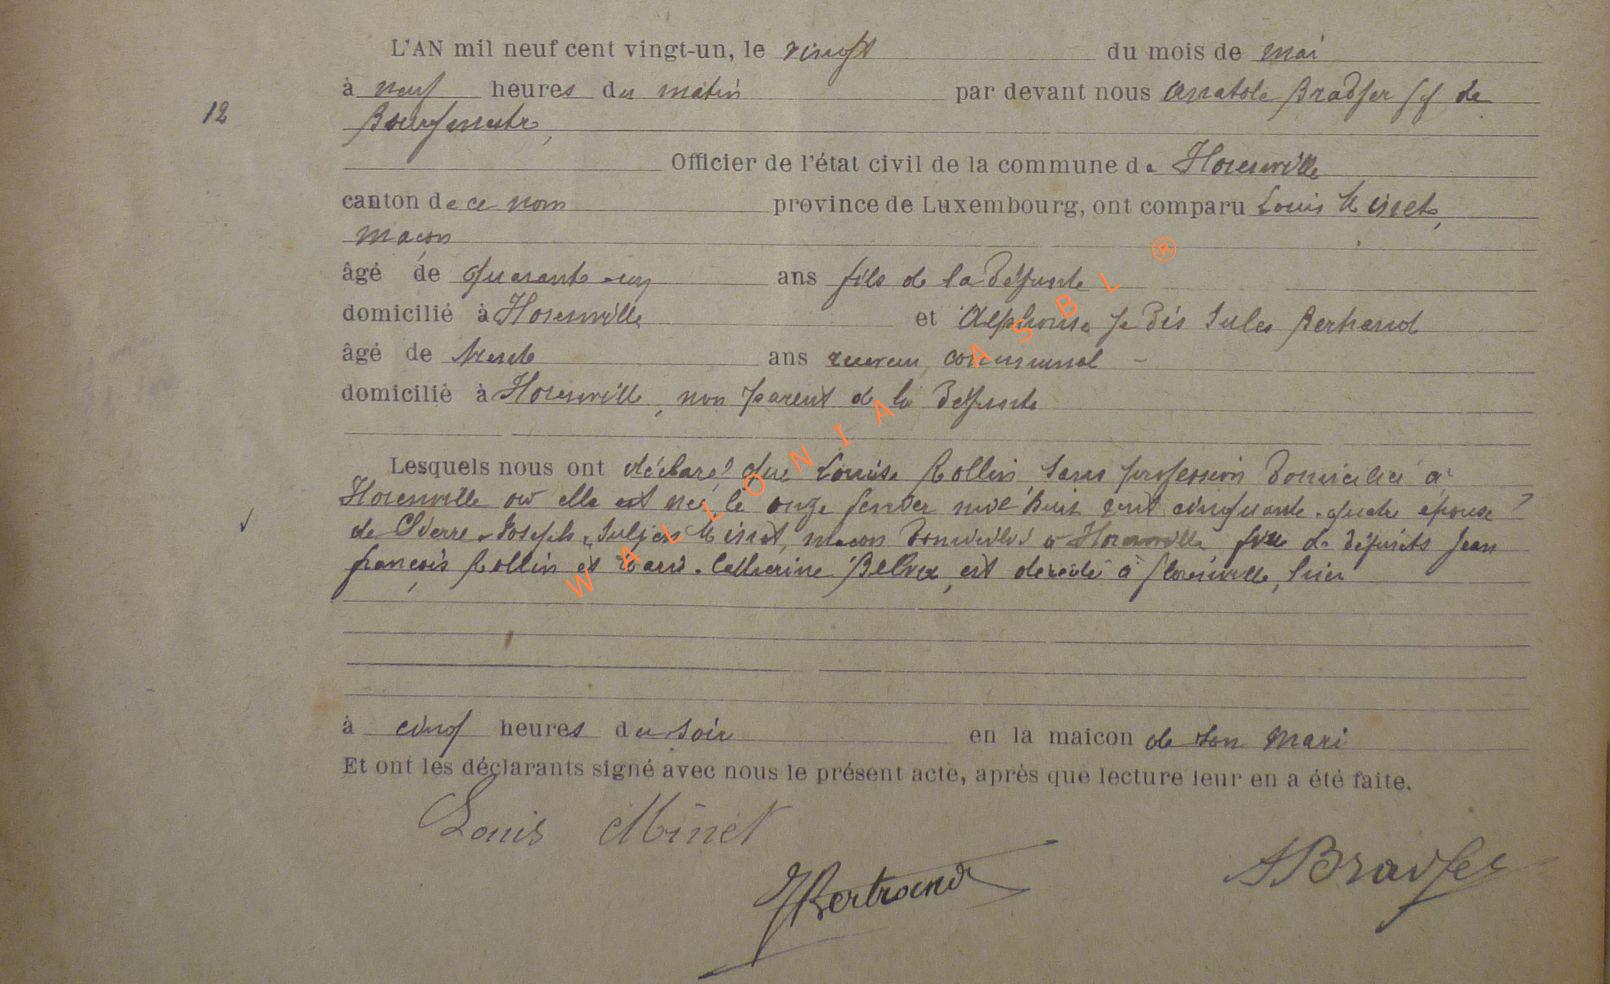 L'AN mil neuf cent vingt-un, le vingt du mois de mai
à neuf heures du matin par devant nous Anatole Bradfer ff de
12
Bourgmestre,
Officier de l'état civil de la commune de Florenville
canton de ce nom province de Luxembourg, ont comparu Louis Minet,
maçon
âgé de quarante-un ans fils de la défunte
domicilié à Florenville et Alphonse Jules Bertrand
âgé de trente ans communal
domicilié à Florenville, non parent de la défunte
Lesquels nous ont déclaré que Louise Rollin, sans profession domiciliée à
Florenville où elle est née, le onze fevrier mil huit cent cinquante-quatre épouse
de Pierre-Joseph-Julien Minet, maçon domicilié à Florenville, fille de défunts Jean
françois Rollin et Marie-Catherine est décédée à florenville, hier
à cinq heures du soir en la maicon de son mari
Et ont les déclarants signé avec nous le présent acte, après que lecture leur en a été faite.
Louis Minet
JBertrand
ABradfer
WALLONIA ASBL ®